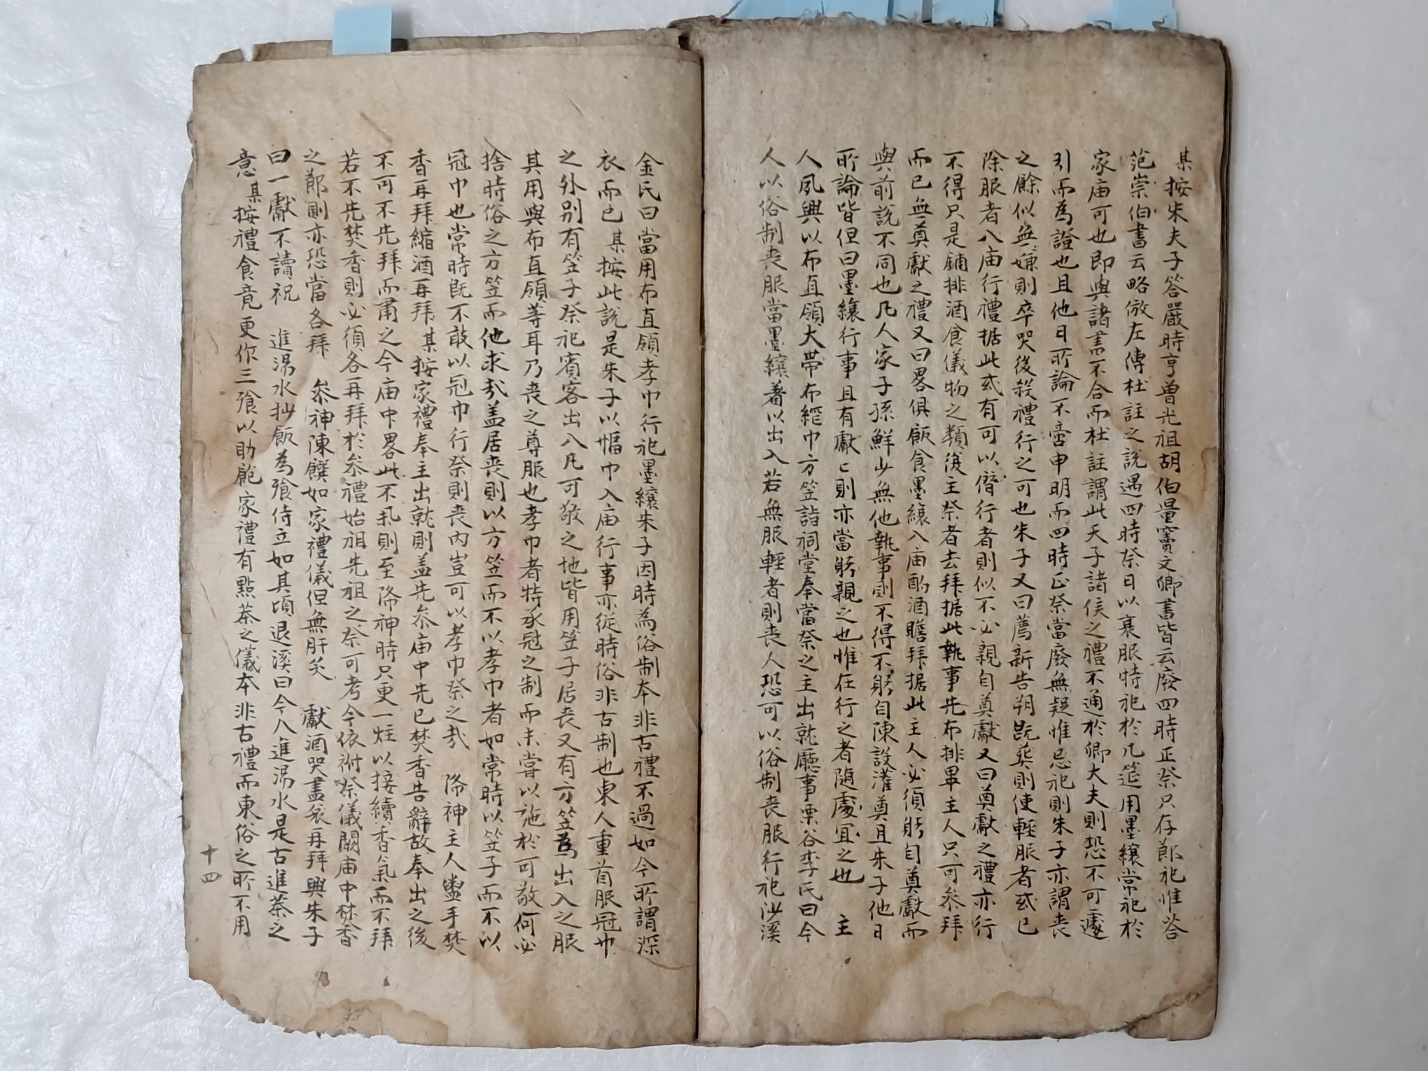 某按朱夫子答嚴時亨曾光祖胡伯量竇文卿書皆云廢四時正祭只存節祀惟答
范崇伯書云略倣左傳杜註之說遇四時祭日以衰服特祀於几筵用墨縗常祀於
家庙可也即與諸書不合而杜註謂此天子諸侯之禮不通於卿大夫則恐不可遽
引而為證也且他日所論不啻申明而四時正祭當廢無疑惟忌祀則朱子亦謂喪
之餘似無嫌則卒哭後殺禮行之可也朱子又曰薦新告朔旣葬則使輕服者或已
除服者入庙行禮据此或有可以僭行者則似不必親自奠獻又曰奠獻之禮亦行
不得只是鋪排酒食儀物之類後主祭者去拜据此執事先布排畢主人只可叅拜
而已無奠獻之禮又曰畧俱飯食墨縗入庙酌酒瞻拜据此主人必須躬自奠獻而
與前說不同也凡人家子孫鮮少無他執事則不得不躬自陳設灌奠且朱子他日
所論皆但曰墨縗行事且有獻〻則亦當躬親之也惟在行之者随處宜之也 主
人夙興以布直領大带布絰巾方笠詣祠堂奉當祭之主出就廳事栗谷李氏曰今
人以俗制喪服當墨縗著以出入若無服輕者則喪人恐可以俗制喪服行祀沙溪
金氏曰當用布直領孝巾行祀墨縗朱子因時為俗制本非古禮不過如今所謂深
衣而已 某按此說是朱子以幅巾入庙行事亦從時俗非古制也東人重首服冠巾
之外别有笠子祭祀賓客出入凡可敬之地皆用笠子居喪又有方笠為出入之服
其用與布直領等耳乃喪之尊服也孝巾者特承冠之制而未嘗以施於可敬何必
捨時俗之方笠而他求㢤盖居喪則以方笠而不以孝巾者如常時以笠子而不以
冠巾也常時既不敢以冠巾行祭則喪內豈可以孝巾祭之㢤 降神主人盥手焚
香再拜縮酒再拜 某按家禮奉主出就則盖先叅庙中先已焚香告辭故奉出之後
不可不先拜而肅之今庙中畧此不焄則至降神時只更一炷以接續香氣而不拜
若不先焚香則必須各再拜於叅禮始祖先祖之祭可考今依祔祭儀闕庙中焚香
之節則亦恐當各拜 叅神陳饌如家禮儀但無肝炙 獻酒哭盡哀再拜興朱子
曰一獻不讀祝 進湯水抄飯為飱侍立如其頃退溪曰今人進湯水是古進茶之
意 某按禮食竟更作三飱以助飽家禮有點茶之儀本非古禮而東俗之所不用
十四